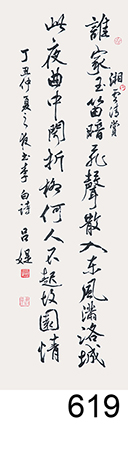 湘雲清賞
誰家玉笛暗飛聲散入東風滿洛城
此夜曲中聞折柳何人不起故園情
丁丑仲夏之夜書李白詩 呂媞
619